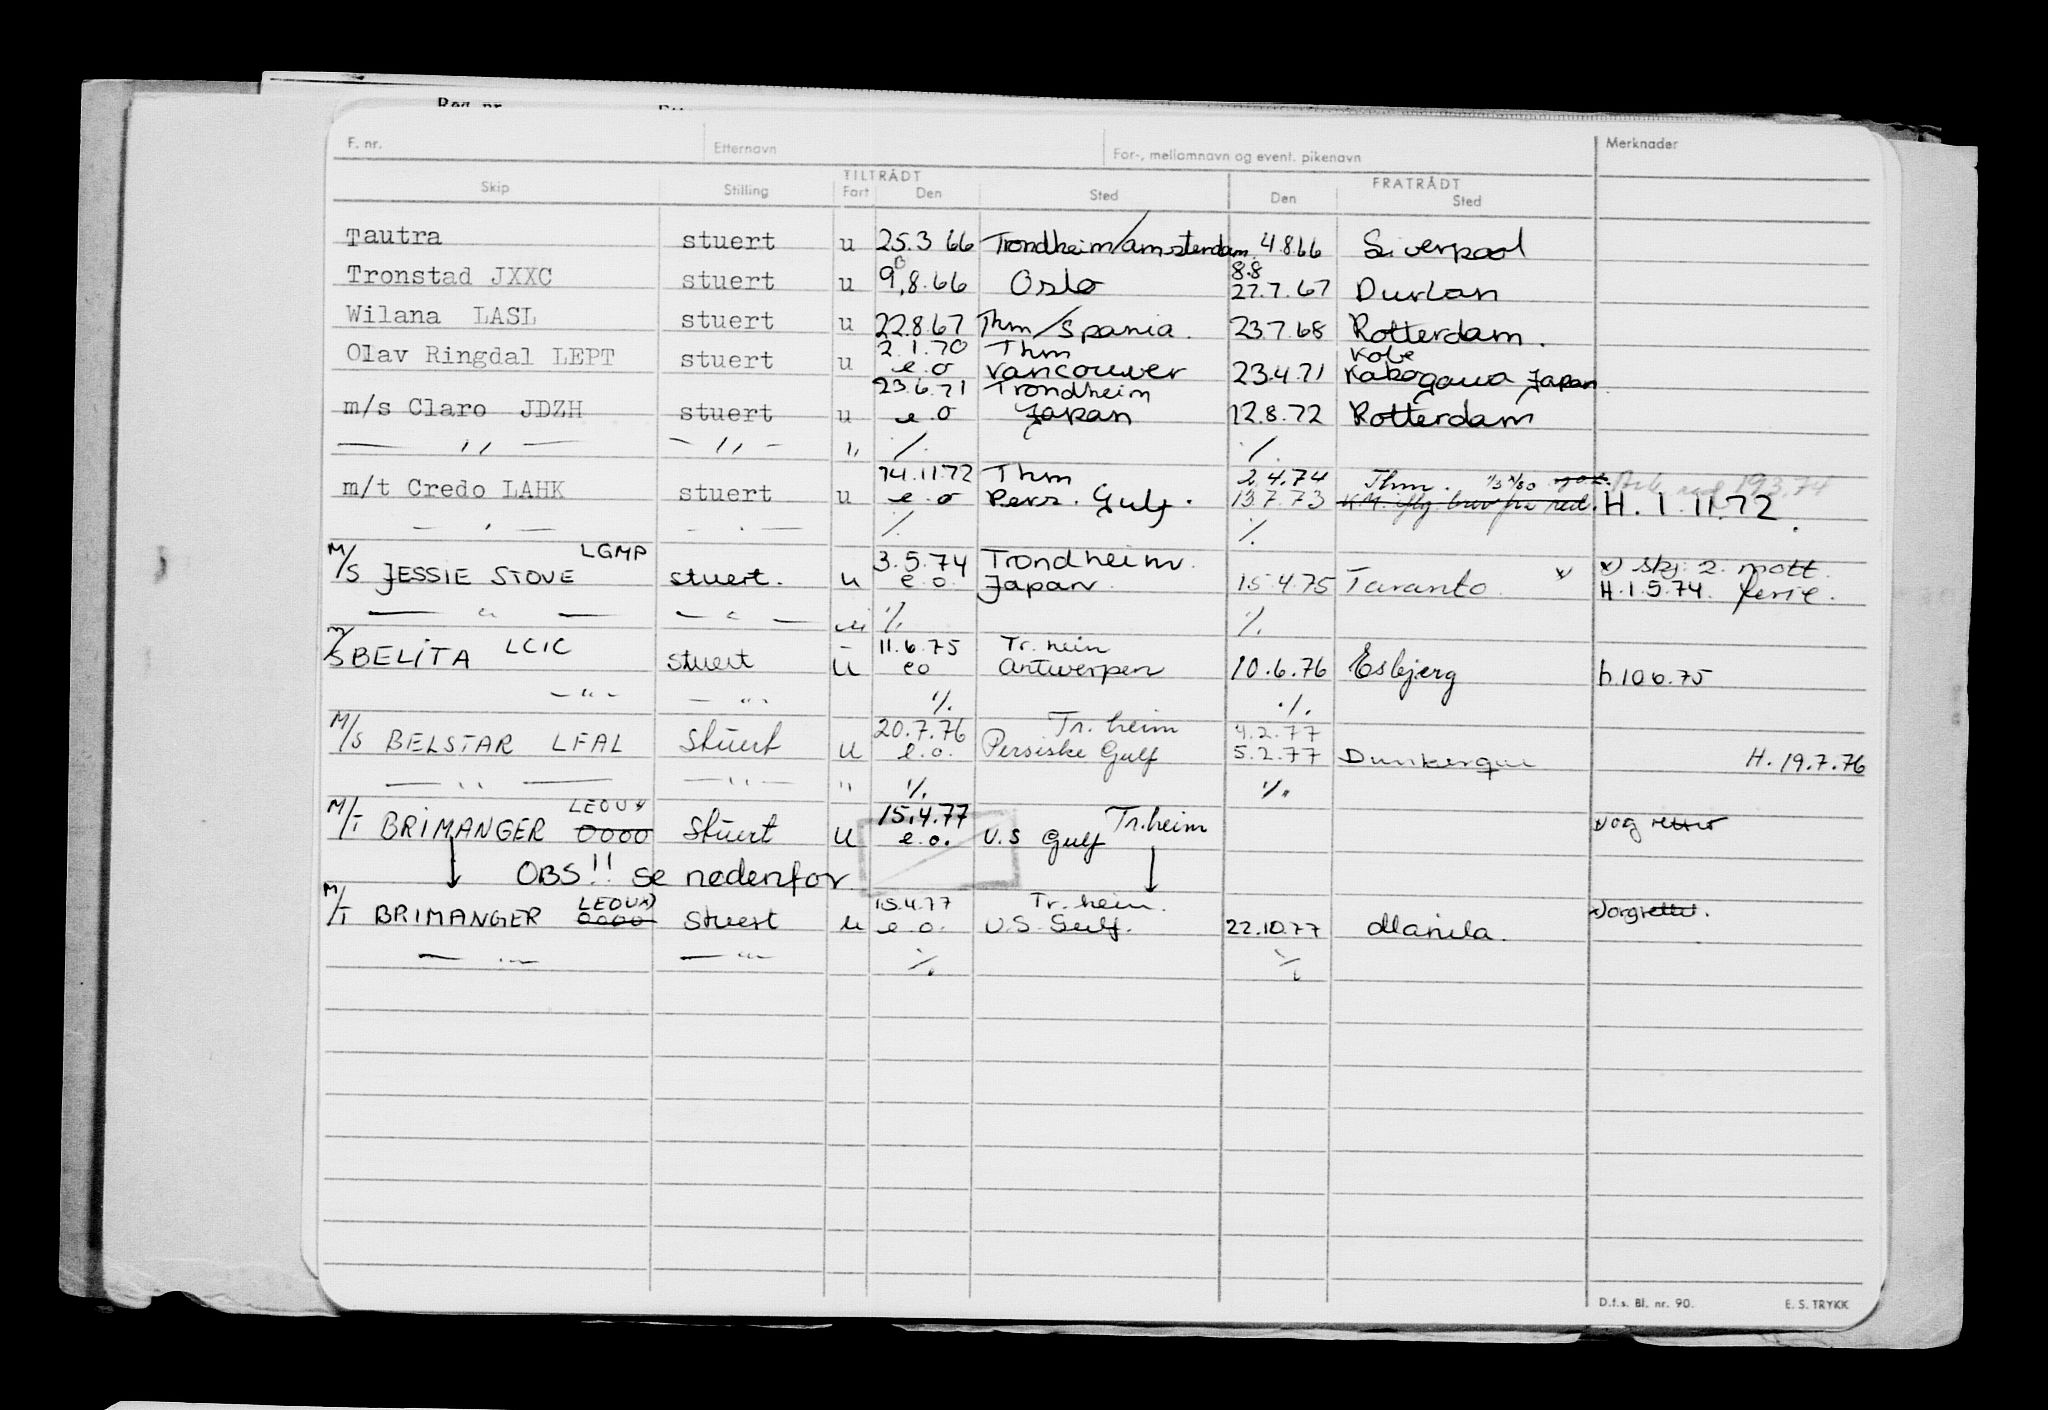 F. nr. Etternavn For-, mellomnavn og event. pikenavn Merknader
TILTRÅDT FRATRÅDT
Skip Stilling Fart Den Sted Den Sted
Tautra stuert u 25.3 66 Trondheim/amsterdam 4.8.66 Liverpool
Tronstad JXXC stuert u 9.8.66 Oslo 8.8 27.7.67 Durban
Wilana LASL stuert u 22.8.67 Thm/Spania. 23.7.68 Rotterdam.
2.1.70 Thm Kobe
Olav Ringdal LEPT stuert u e.o Vancouver 23.4.71 Kakogawa Japan
23.6.71 Trondheim
m/s Claro JDZH stuert u e.o Japan 12.8.72 Rotterdam
— ,, — — ,, — ,, ./. ./.
14.11.72 Thm 2.4.74 Thm.
m/t Credo LAHK stuert u e.o Pers. Gulf. 13.7.73 H. 1.11.72.
— , — — . — ./. ./.
LGMP 3.5.74 Trondheim. x) skj. 2. mott.
M/S JESSIE STOVE stuert. u e.o. Japan. 15.4.75 Taranto. x) H.1.5.74. ferie.
— " — — " — u ./. ./.
LCIC 11.6.75 Tr.heim
M/S BELITA stuert u eo Antwerpen 10.6.76 Esbjerg h.10 6.75
— " — — " — ./. ./.
20.7.76 Tr.heim 4.2.77
M/S BELSTAR LFAL Stuert u e.o. Persiske Gulf 5.2.77 Dunkerque H. 19.7.76
— " — — " — " ./. ./.
LEQU x) 15.4.77 Tr.heim
M/T BRIMANGER OOOO Stuert u e.o. U.S Gulf
OBS!! se nedenfor
LEQU x) 15.4.77 Tr.heim.
M/T BRIMANGER OOOO Stuert u e.o. U.S. Gulf. 22.10.77 Manila.
— " — — " — ./. ./.
D.f.s. Bl. nr. 90. E. S. TRYKK